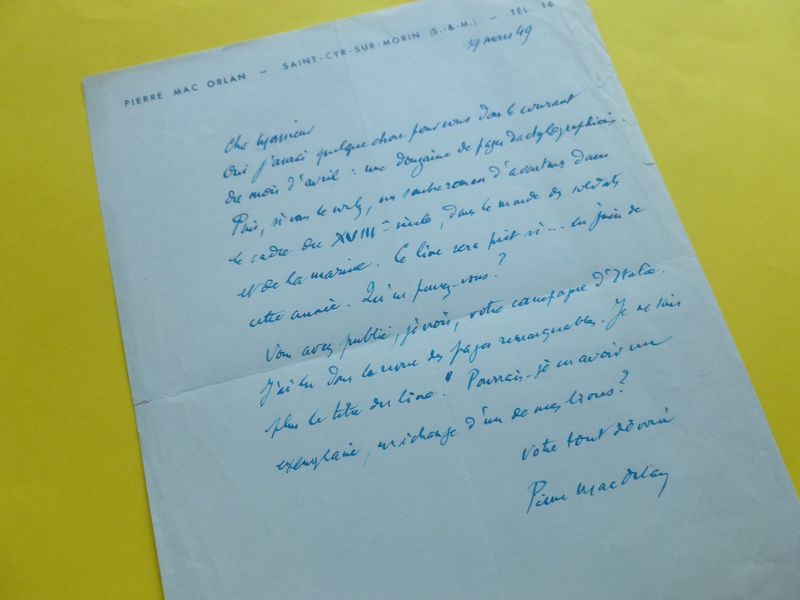 PIERRE MAC ORLAN — SAINT-CYR-SUR-MORIN (S.-&-M.) — TÉL. 16
19 mars 49
Cher Monsieur
Oui j'aurai quelque chose pour vous dans le courant
du mois d'avril : une douzaine de pages dactylographiées.
Puis, si vous le voulez, un roman d'aventures dans
le cadre du XVIIIe siècle, dans le monde des soldats
et de la marine. Ce livre sera prêt si... en juin de
cette année. Qu'en pensez-vous ?
Vous avez publié, je crois, votre campagne d'Italie.
J'ai lu dans la revue des pages remarquables. Je ne sais
plus le titre du livre. Pourrais-je en avoir un
exemplaire, en échange d'un de mes livres ?
Votre tout dévoué
Pierre Mac Orlan